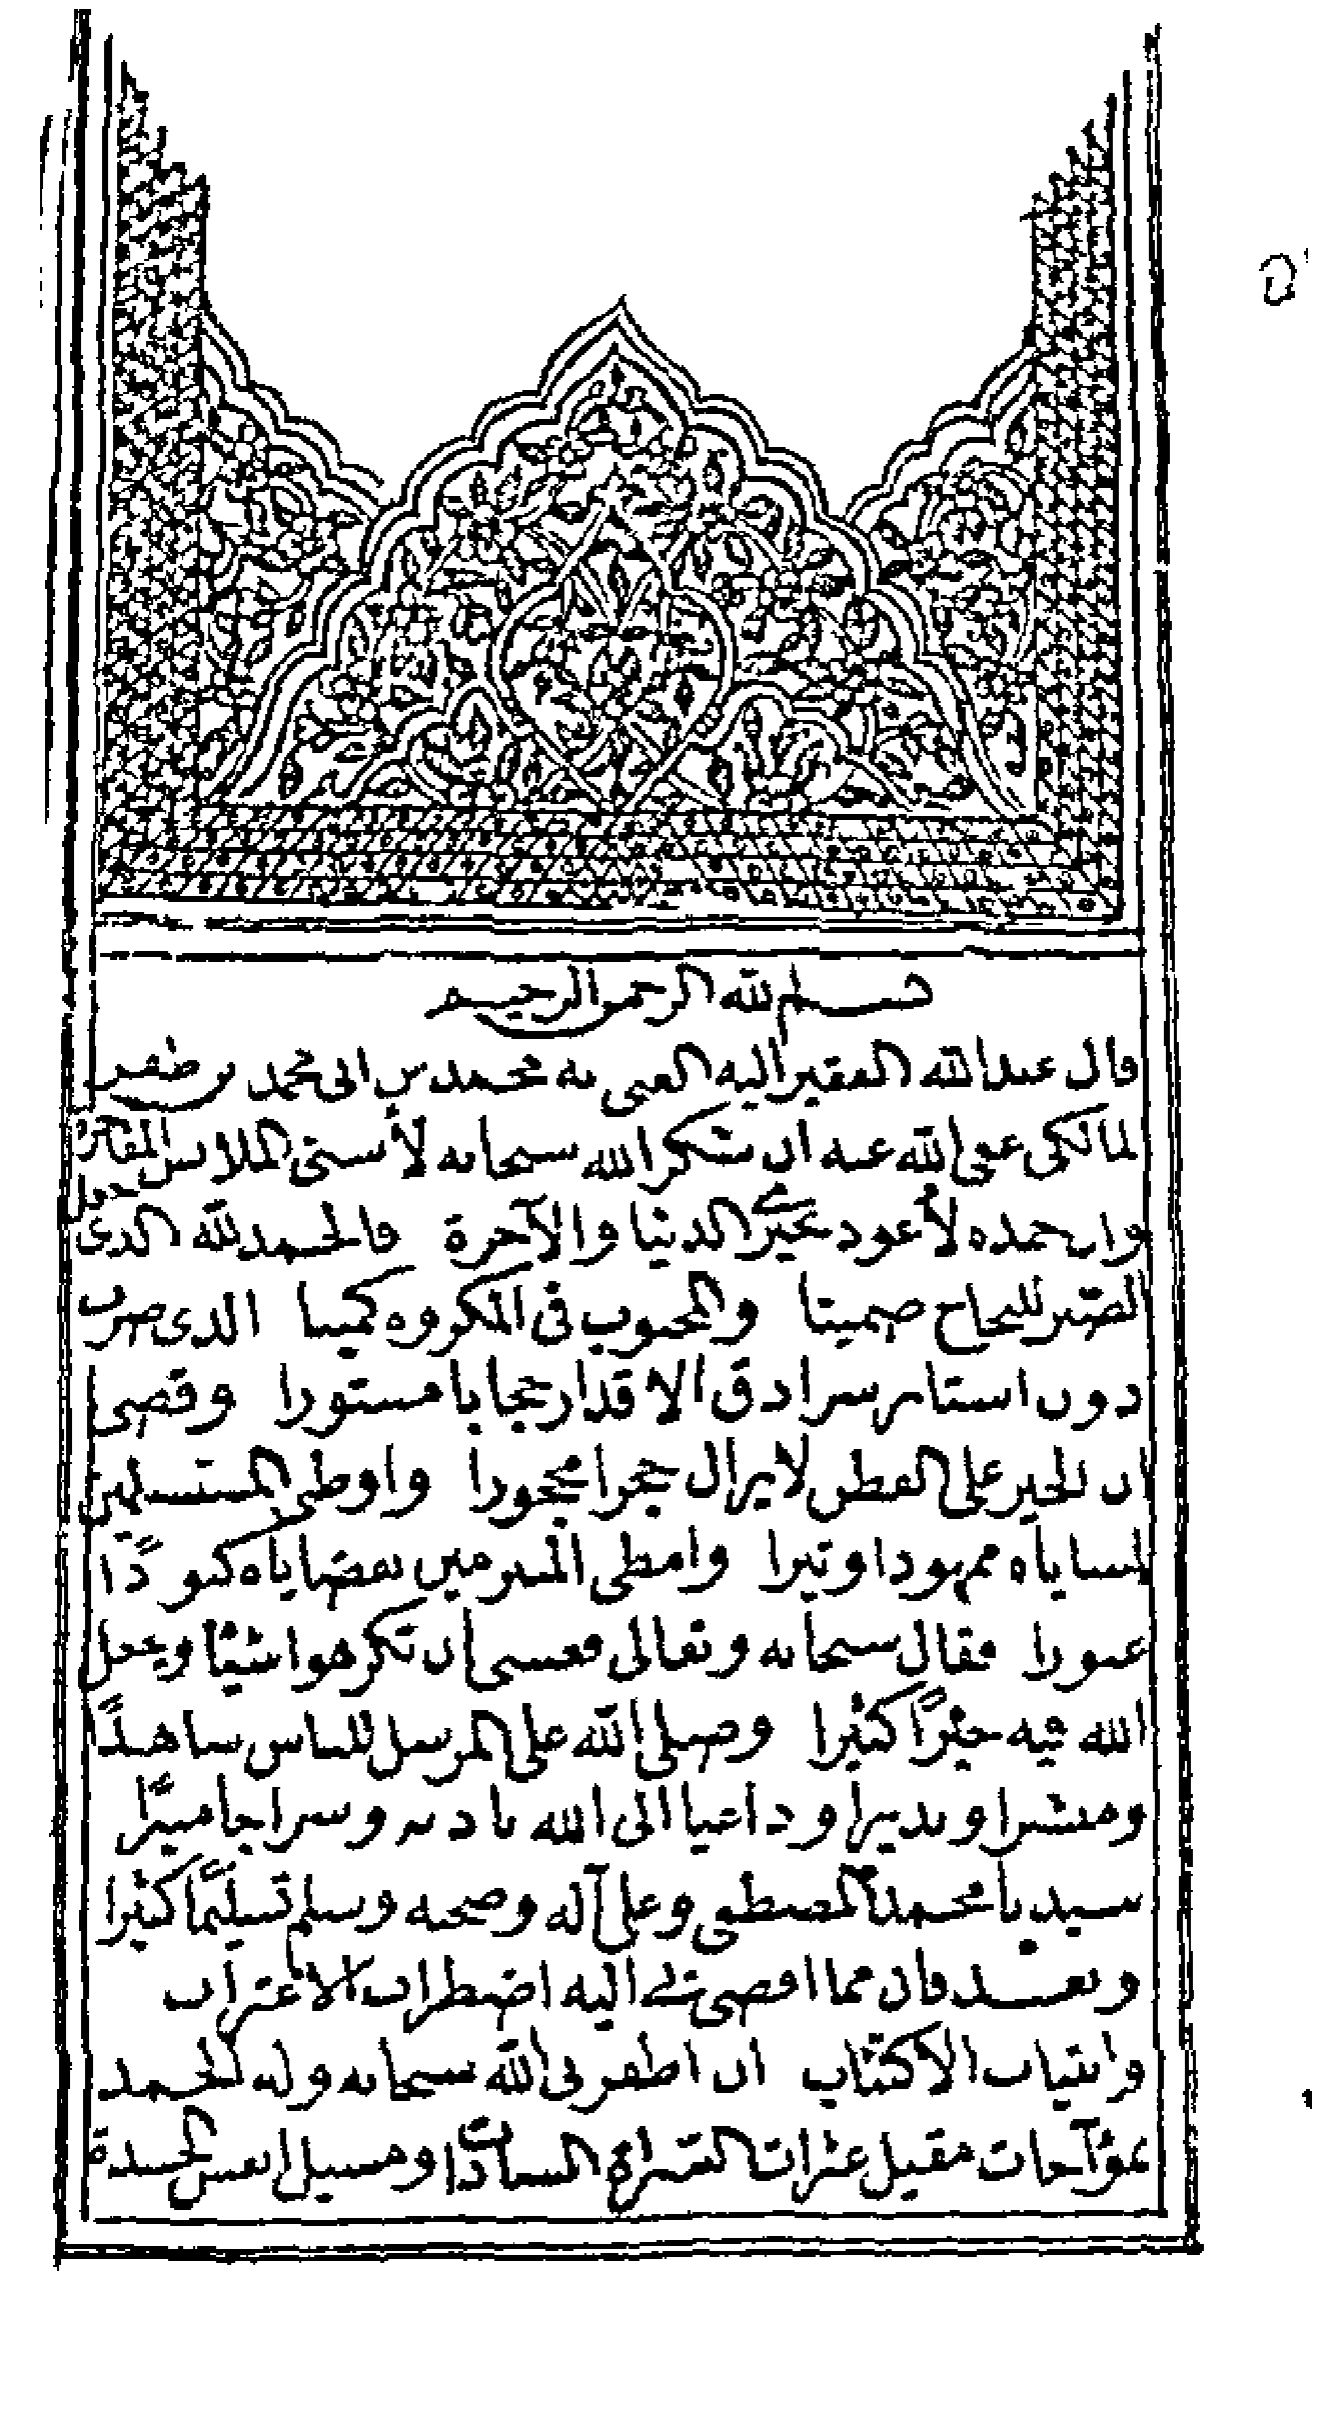 بسم الله الرحمن الرحيم
قال عبد الله الفقير اليه الغنى به محمد بن ابى محمد بن ظفر
المالكى عفى الله عنه ان شكر الله سبحانه لأسنى الملابس الفاخرة
وان حمده لأعود بخيرى الدنيا والآخرة فالحمد لله الذى جعل
الصبر للنجاح ضمينا والمحبوب فى المكروه كمينا الذى ضرب
دون استار سرادق الاقدار حجابا مستورا وقضى
ان الخير على الفطن لا يزال حجرا محجورا واوطى المستسلمين
لمساياه ممهودا وتيرا وامطى المتبرمين بقضاياه كنودًا
عثورا فقال سبحانه وتعالى فعسى ان تكرهوا شيئا ويجعل
الله فيه خيرًا كثيرا وصلى الله على المرسل للناس شاهدًا
ومبشرا ونذيرا وداعيا الى الله باذنه وسراجا منيرًا
سيدنا محمد المصطفى وعلى آله وصحبه وسلم تسليمًا كثيرا
وبعد فان مما افضى بى اليه اضطراب الاغتراب
وانتياب الاكتئاب ان اظفرنى الله سبحانه وله الحمد
بمؤاخات مقيل عثرات السراة السادات ومسيل انفس الحسدة